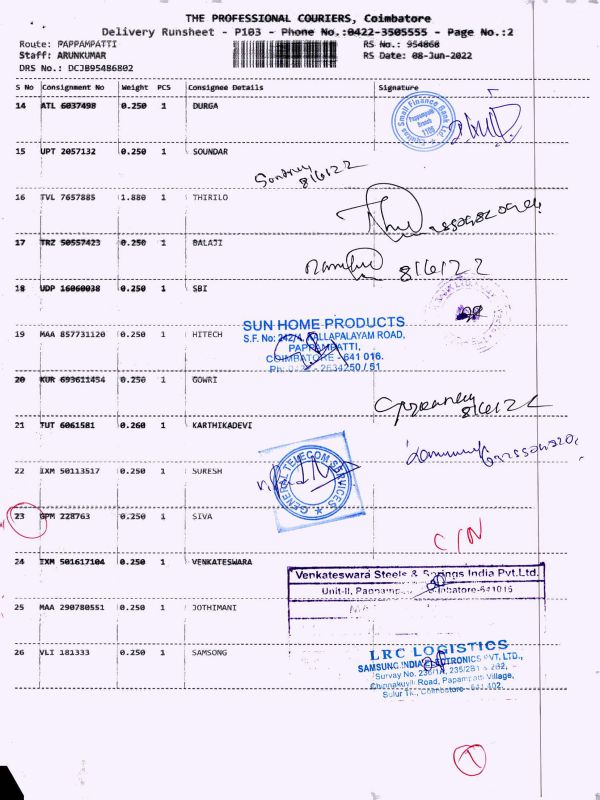 THE PROFESSIONAL COURIERS, Coimbatore
Delivery Runsheet - P103 - Phone No.:0422-3505555 - Page No.:2
Route: PAPPAMPATTI RS No.: 954868
Staff: ARUNKUMAR RS Date: 08-Jun-2022
DRS No.: DCJB95486802
S No Consignment No Weight PCS Consignee Details Signature
14 ATL 6037498 0.250 1 DURGA
Equitas Small Finance Bank Ltd
Pappampatti
Branch
1106
15 UPT 2057132 0.250 1 SOUNDAR
8/6/22
16 TVL 7657885 1.880 1 THIRILO
17 TRZ 50557423 0.250 1 BALAJI
8/6/22
18 UDP 16060038 0.250 1 SBI
19 MAA 857731120 0.250 1 HITECH
SUN HOME PRODUCTS
S.F. No: 242/4, KALLAPALAYAM ROAD,
PAPPAMPATTI,
COIMBATORE - 641 016.
Ph: 2634250 / 51
20 KUR 693611454 0.250 1 GOWRI
8/6/22
21 TUT 6061581 0.260 1 KARTHIKADEVI
22 IXM 50113517 0.250 1 SURESH
GENERAL TELECOM SERVICES
23 GPM 228763 0.250 1 SIVA
C/N
24 IXM 501617104 0.250 1 VENKATESWARA
Venkateswara Steels & Springs India Pvt.Ltd.
Unit-II, Coimbatore-641016
25 MAA 290780551 0.250 1 JOTHIMANI
26 VLI 181333 0.250 1 SAMSONG
LRC LOGISTICS
SAMSUNG INDIA ELECTRONICS PVT. LTD.,
Survay No. 236/1A, 235/2B1 & 2B2,
Road, Papampatti Village,
Sulur Tk., Coimbatore - 641 402.